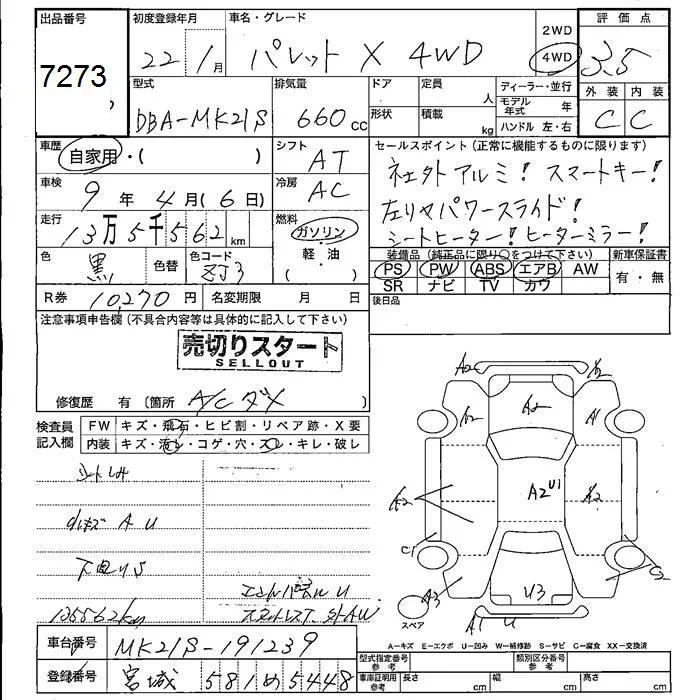 出品番号 初度登録年月 車名・グレード 評価点
7273 22 1月 パレット X 4WD 2WD 4WD 3.5
型式 排気量 ドア 定員 人 ディーラー・並行 外装 内装
DBA-MK21S 660cc 形状 積載 kg モデル年式 年 ハンドル 左・右 C C
車歴 自家用・( ) シフト AT セールスポイント(正常に機能するものに限ります)
車検 9年 4月(6日) 冷房 AC 社外アルミ! スマートキー!
走行 13万5千562km 燃料 ガソリン 軽・油 ( ) 左リヤパワースライド!
シートヒーター! ヒーターミラー!
色 黒 色替 色コード ZJ3 装備品(純正品に限り○をつけて下さい) 新車保証書
PS PW ABS エアB AW 有・無
SR ナビ TV カワ
R券 10,270円 名変期限 月 日 後日品
注意事項申告欄(不具合内容等は具体的に記入して下さい)
売切りスタート
SELLOUT
修復歴 有 (箇所 A/Cダメ )
検査員記入欄 FW キズ・飛石・ヒビ割・リペア跡・X要
内装 キズ・汚レ・コゲ・穴・スレ・キレ・破レ
A2 A2
A2 A2 A1
A2 A2 U1 A2
C1 C2
A3 U3
A1 U
スペア
A U
下廻りS
エンドパネル U
135562km
A=キズ E=エクボ U=凹み W=補修跡 S=サビ C=腐食 XX=交換済
車台番号 MK21S-191239 型式指定番号参考 類別区分番号参考
登録番号 宮城 581 め 5448 車庫証明用参考 長さ cm 幅 cm 高さ cm